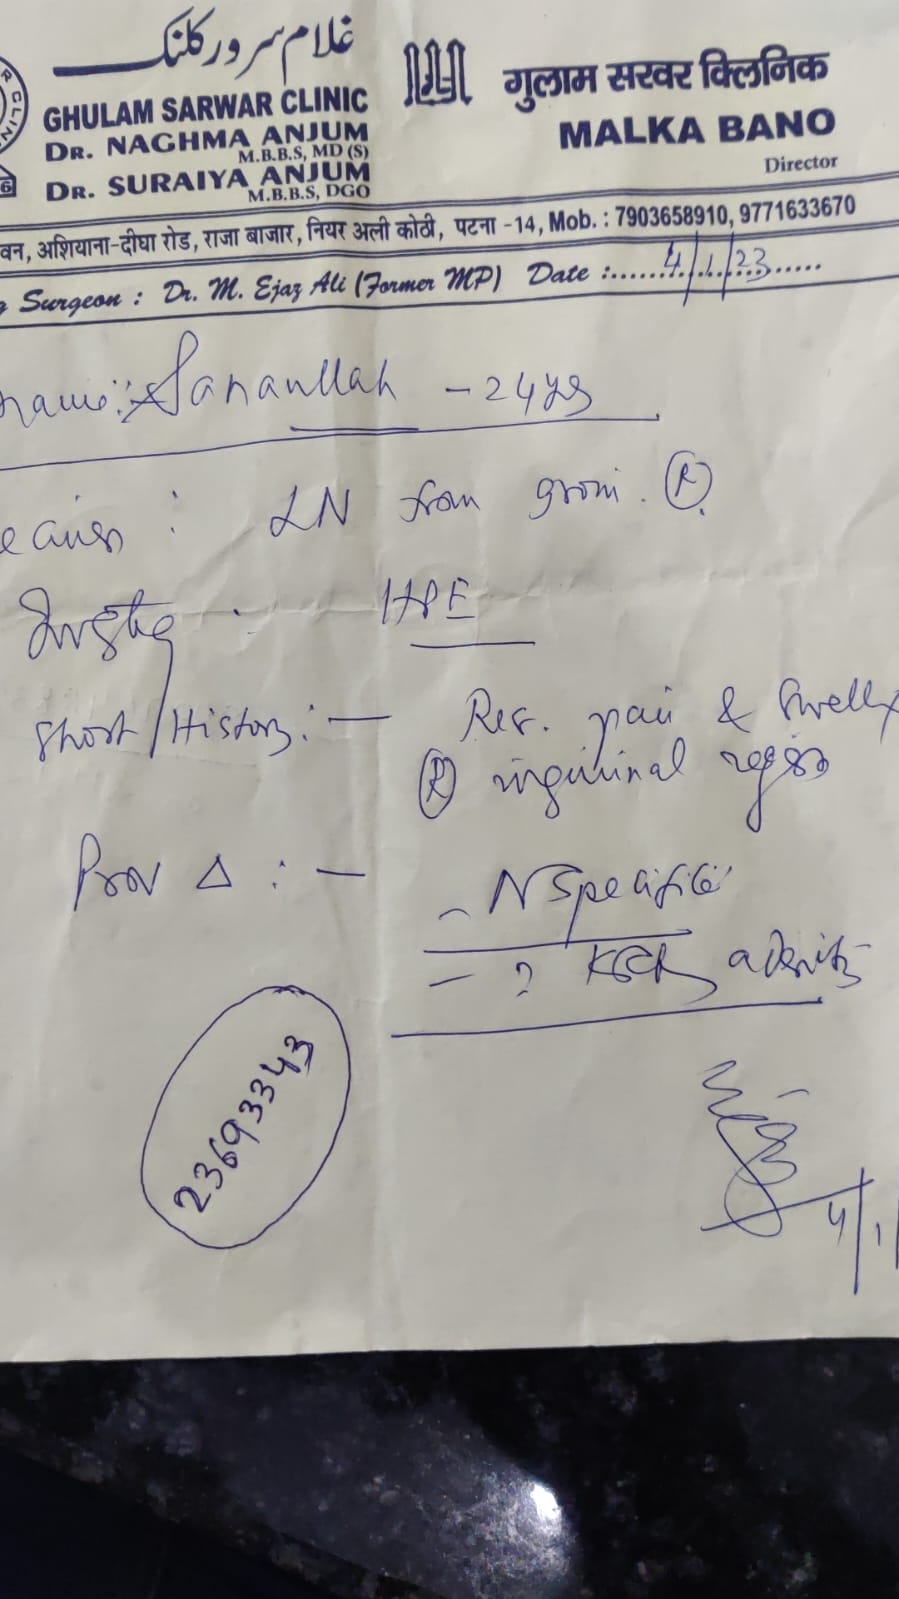 غلام سرور کلنک
GHULAM SARWAR CLINIC
DR. NAGHMA ANJUM
M.B.B.S, MD (S)
DR. SURAIYA ANJUM
M.B.B.S, DGO
गुलाम सरवर क्लिनिक
MALKA BANO
Director
वन, अशियाना-दीघा रोड, राजा बाजार, नियर अली कोठी, पटना -14, Mob. : 7903658910, 9771633670
Surgeon : Dr. M. Ejaz Ali (Former MP) Date :......4/1/23.....
name: Sanaullah - 24 yrs
: LN from groin. (R)
: HPE
Short History: — Rec. pain & Swelly
(R) inguinal region
Prov Δ : — - N Specific
- ? adenitis
23693343
4/1/